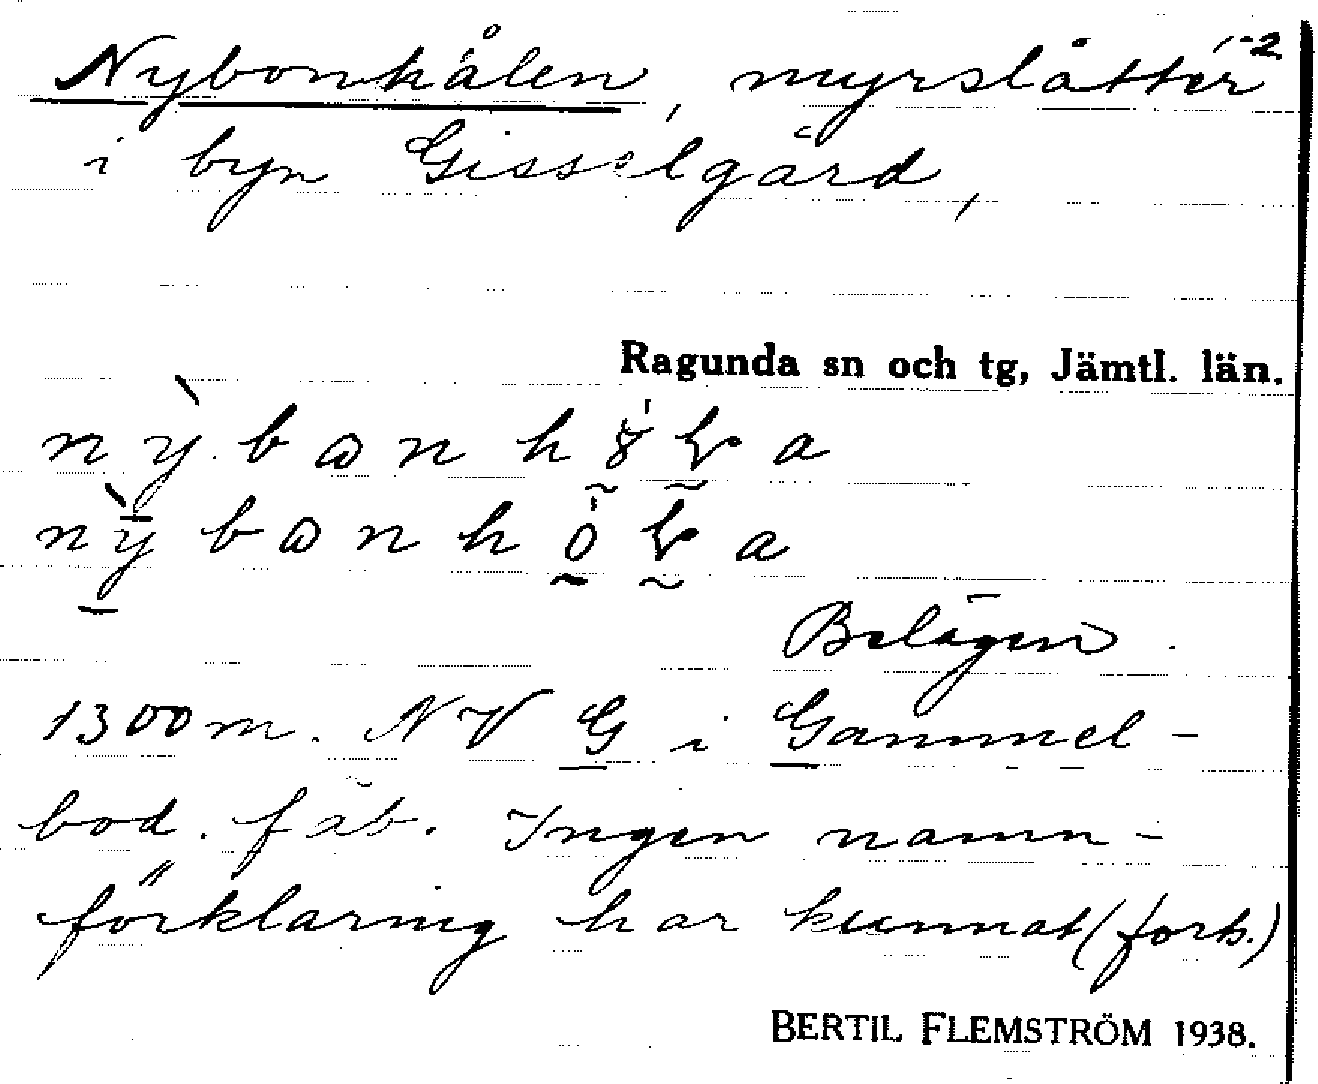 Nybonhålen, myrslåtter 1-2
i byn Gisselgård,
Ragunda sn och tg, Jämtl. län.
Belägen
1300 m. NV G i Gammel-
bod. fäb. Ingen namn-
förklaring har kunnat (forts.)
BERTIL FLEMSTRÖM 1938.